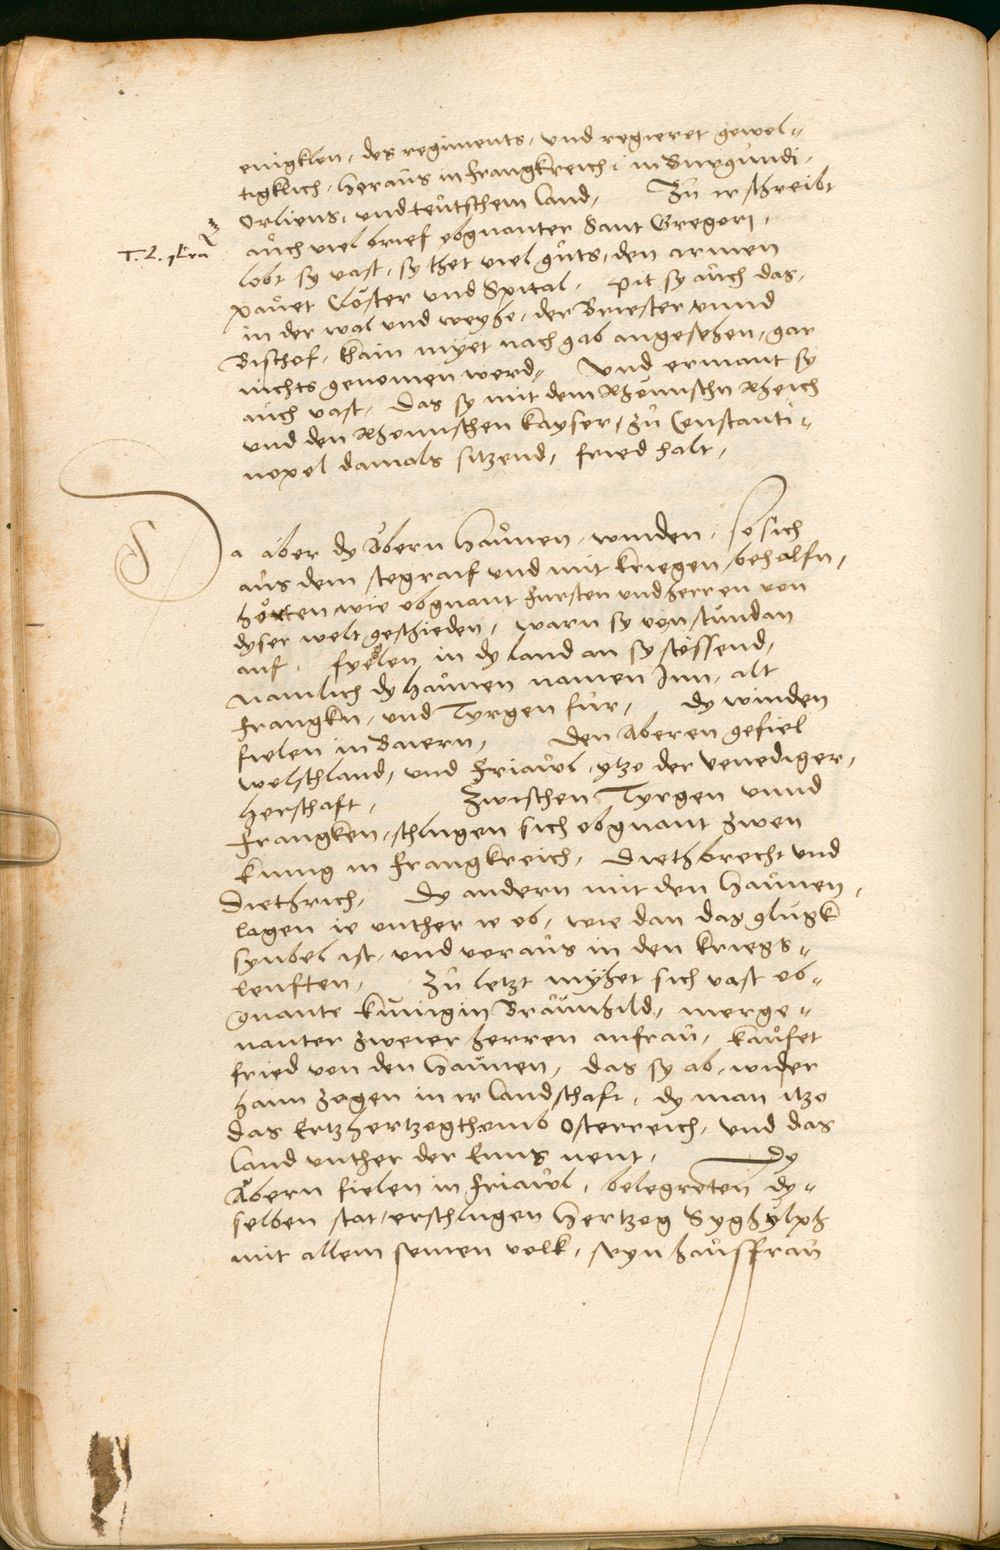 enigklen, des regiments, und regieret gewel-
tigklich, heraus in frangkreich, in Burgundi,
Orliens, und teutschem land, Zu ir schreibt
auch viel brief obgnanter Sant Gregori,
lobt sy vast, sy thet viel guts, den armen
pauet Clöster und Spital, Pit sy auch das,
in der wal und weyhe, der Briester unnd
Bischof, khain myet nach gab angesehen, gar
nichts genomen werd, Und ermant sy
auch vast, Das sy mit dem Rhömischn Rheich
und den Rhomischen kayser, zu Constanti-
nopel damals sitzend, fried halt,
Da aber dy Abern Haunen, winden, so sich
aus dem stegraif und mit kriegen behalfn,
hörten wie obgnant Fursten und herren von
dyser welt geschieden, warn sy von stundan
auf, fyelen in dy land an sy stossend,
Namlich dy haunen namen Inn, alt
Frangkn, und Tyrgen für, dy winden
fielen in Baiern, Den Aberen gefiel
welschland, und Friaul, ytzo der venediger,
herschaft, Zwischen Tyrgen unnd
Frangken, schlugen sich obgnant zwen
kunig in Frangkreich, Diethbrecht und
Diethrich, Dy andern mit den Haunen,
lagen ie unther ie ob, wie dan das glugk
synbel ist, und voraus in den kriegs-
leuften, Zu letzt myhet sich vast ob-
gnante kunigin Braunhild, merge-
nanter zweier herren anfrau, kaufet
fried von den Haunen, das sy ab, wider
haim zogen in ir landschaft, dy man itzo
das Ertzhertzogthomb Osterreich, und das
land unther der Enns nent, Dy
Abern fielen in Friaul, belegreten dy-
selben stat, erschlugen Hertzog Syghylph
mit allem seinen volk, Seyn hausfrau